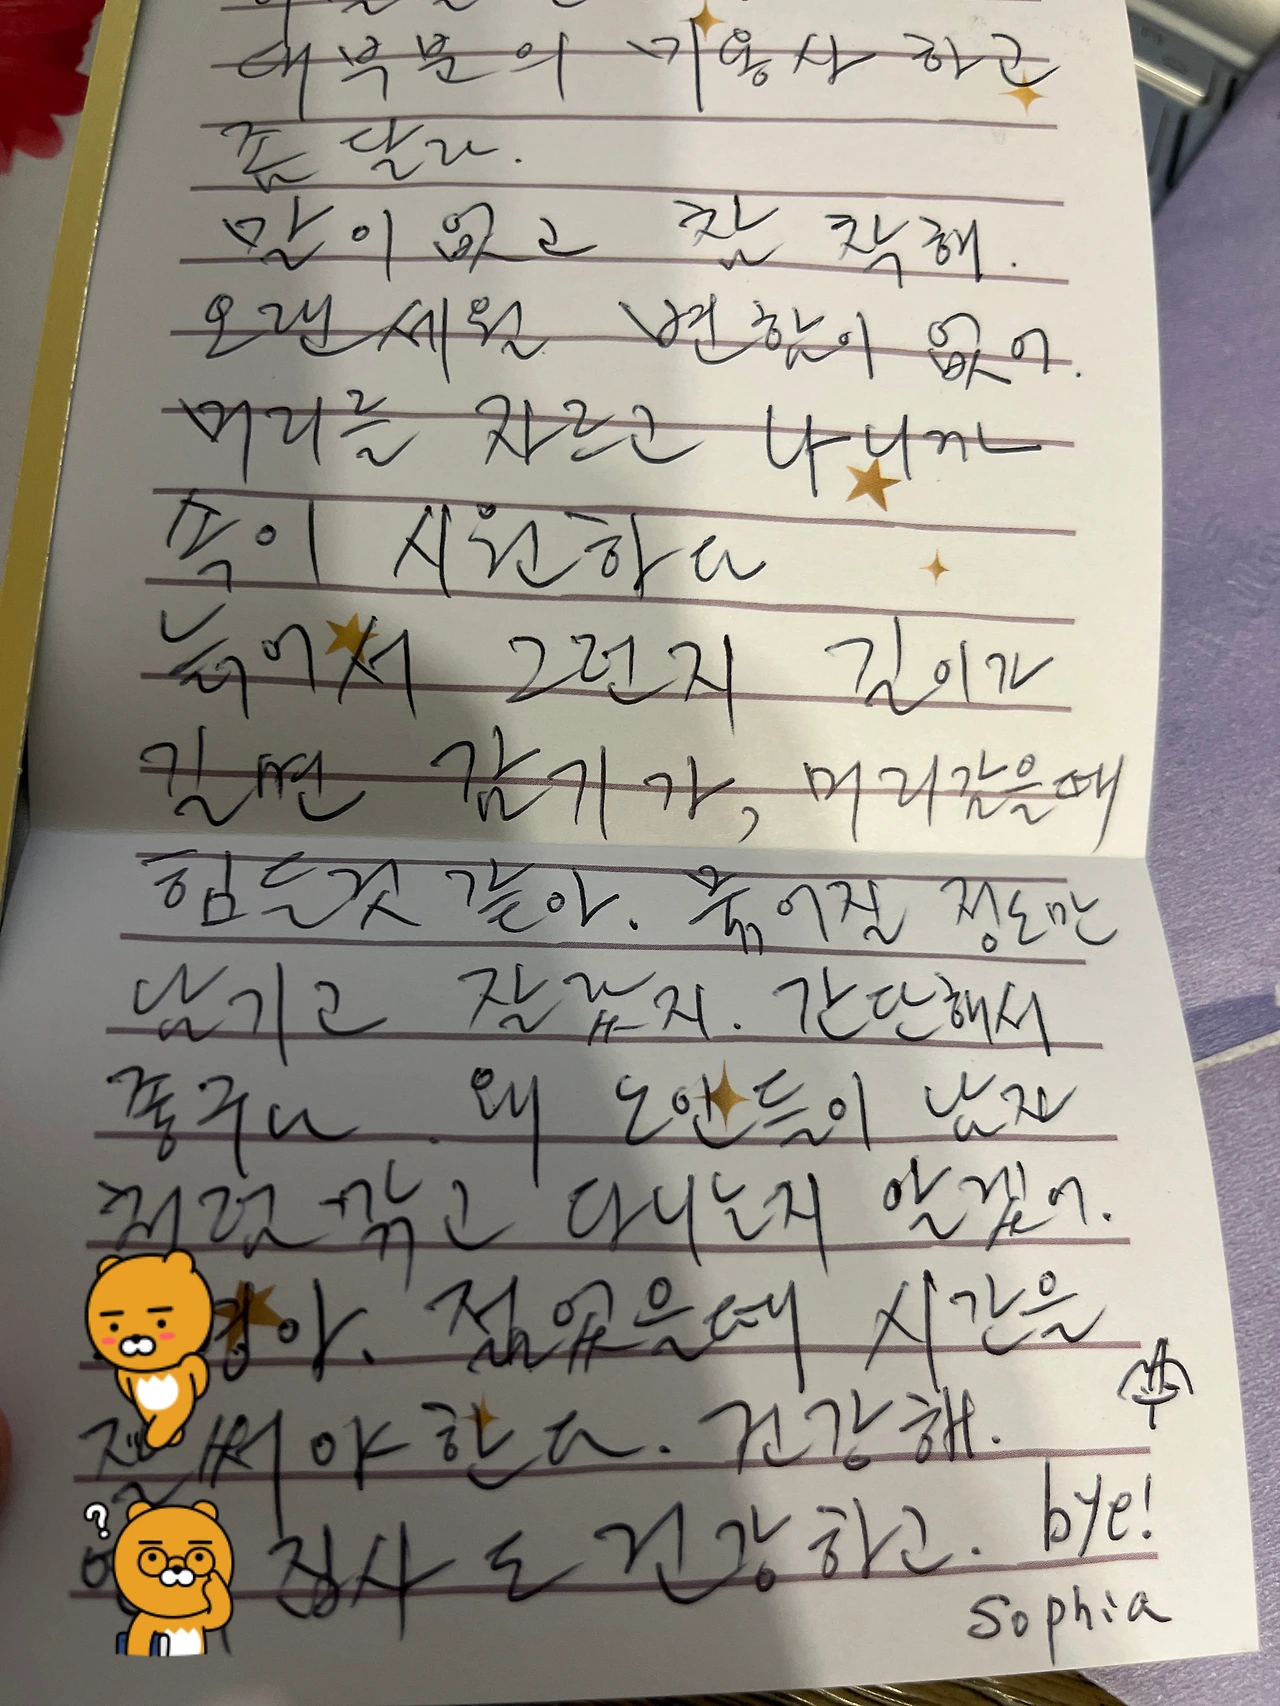 대부분의 미용사 하고
좀 달라.
말이 없고 참 착해.
오랜세월 변함이 없어.
머리를 자르고 나니까
속이 시원하다
늙어서 그런지 길이가
길면 감기가, 머리감을때
힘든것 같아. 묶어질 정도만
남기고 잘랐지. 간단해서
좋구나 왜 노인들이 남자
처럼 깎고 다니는지 알겠어.
아. 젊었을때 시간을
잘써야 한다. 건강해.
집사도 건강하고. bye!
Sophia